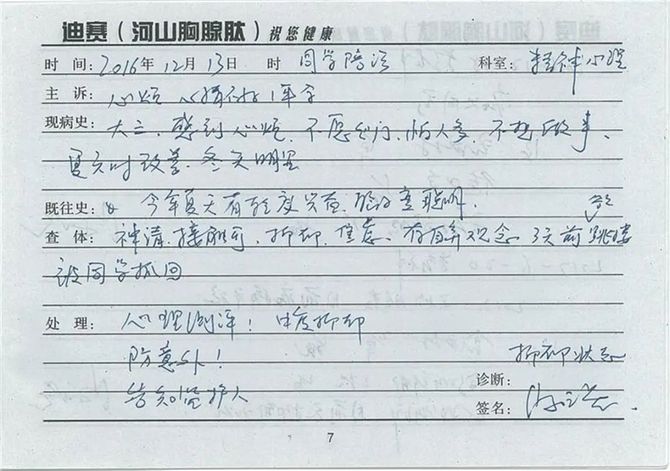 迪赛（河山胸腺肽）祝您健康
时 间：2016年12月13日 时 同学陪诊 科室：精神心理
主 诉：心烦 心情不好1年余
现病史：大三，感到心烦，不愿出门，怕人多，不想做事，
夏天时改善，冬天明显
既往史： 今年夏天有轻度兴奋，觉得变聪明。
查 体：神清，接触可，抑郁，焦虑，有自弃观念，3天前欲跳楼
被同学抓回
处 理：心理测评：中度抑郁
防意外！ 抑郁状态
诊断：
告知监护人
签名：
7